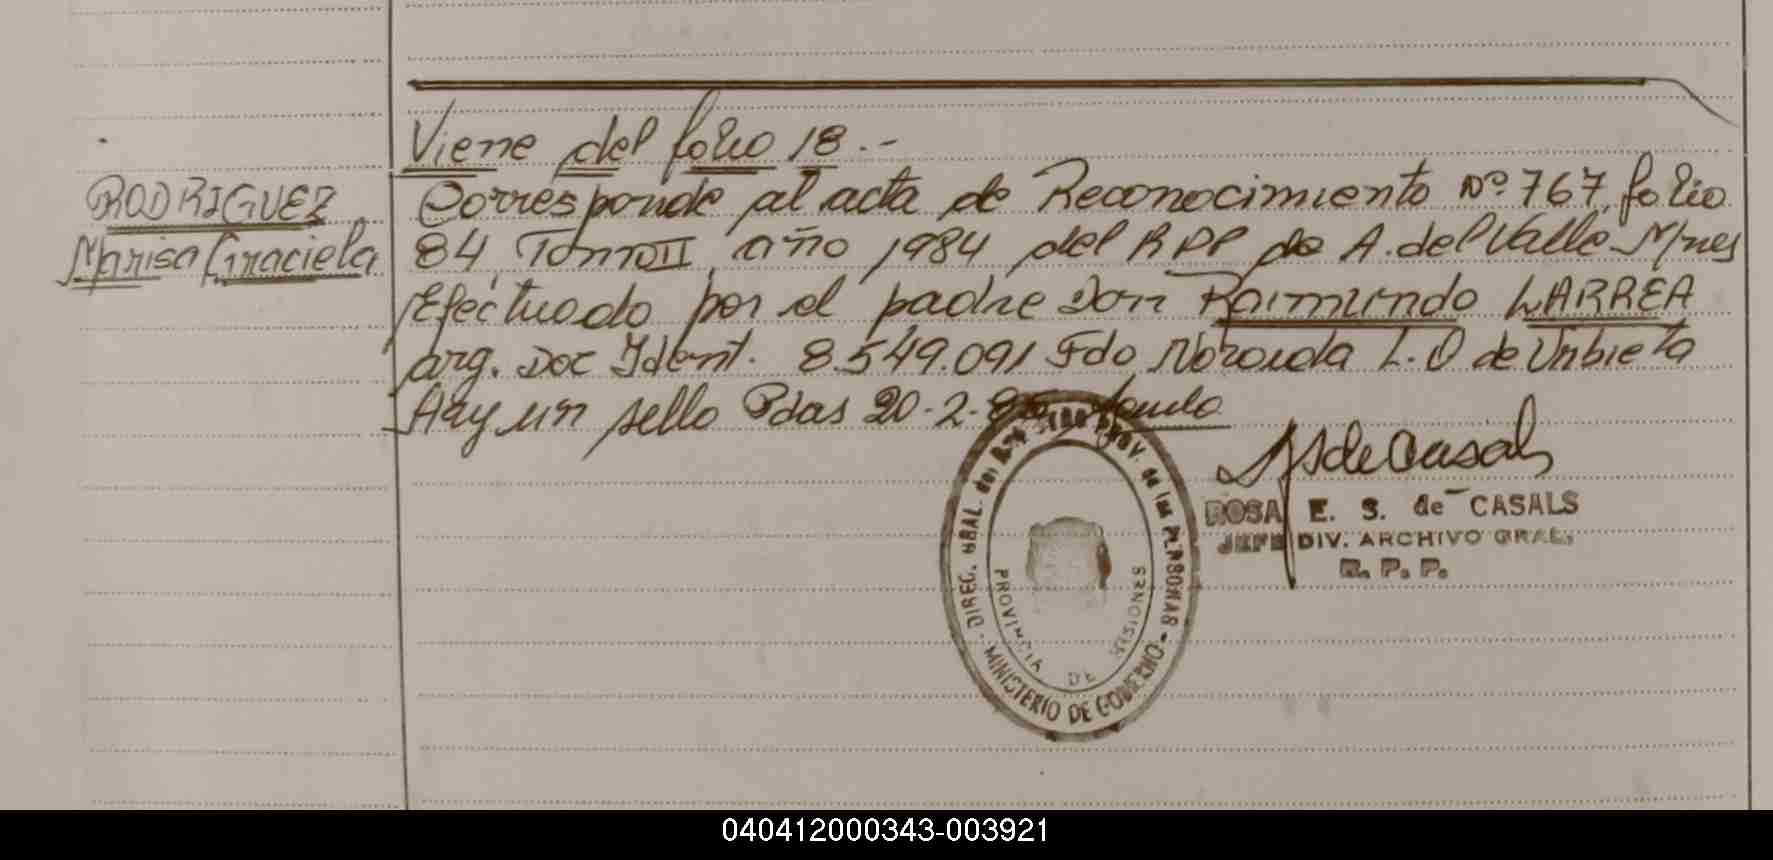 Viene del folio 18.-
RODRIGUEZ
Marisa Graciela
Corresponde al acta de Reconocimiento Nº 767, folio
84, Tomo II, año 1984 del RPP de A. del Valle Mnes
Efectuado por el padre Don Raimundo LARREA
arg. Doc Ident. 8.549.091 Fdo, L. O de Urbieta
Hay un sello Pdas 20-2-
ROSA E. S. de CASALS
JEFE DIV. ARCHIVO GRAL.
R. P. P.
DIREC. GRAL. del PROV. de las PERSONAS - MINISTERIO DE GOBIERNO -
PROVINCIA DE MISIONES
040412000343-003921